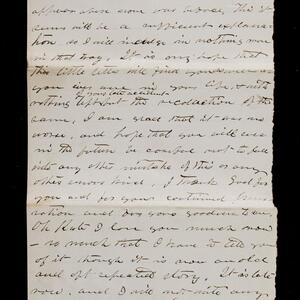 appear when some one writes. This it
seems will be a sufficient explana-
tion so I will indulge in nothing more
in that way. It is my hope that
this little letter will find you as well as
you ever were in your life, with
of your late accident
nothing left but the recollection of the
same, I am glad that it was no
worse, and hope that you will ever
in the future be careful not to fall
into any other mistake of this or any
other kind. I thank God for
you and for your continued
and for your goodness to me.
Oh Kate I love you much now
so much that I have to tell you
of it though it is now an old
and oft repeated story. It is late
now, and I will not write any